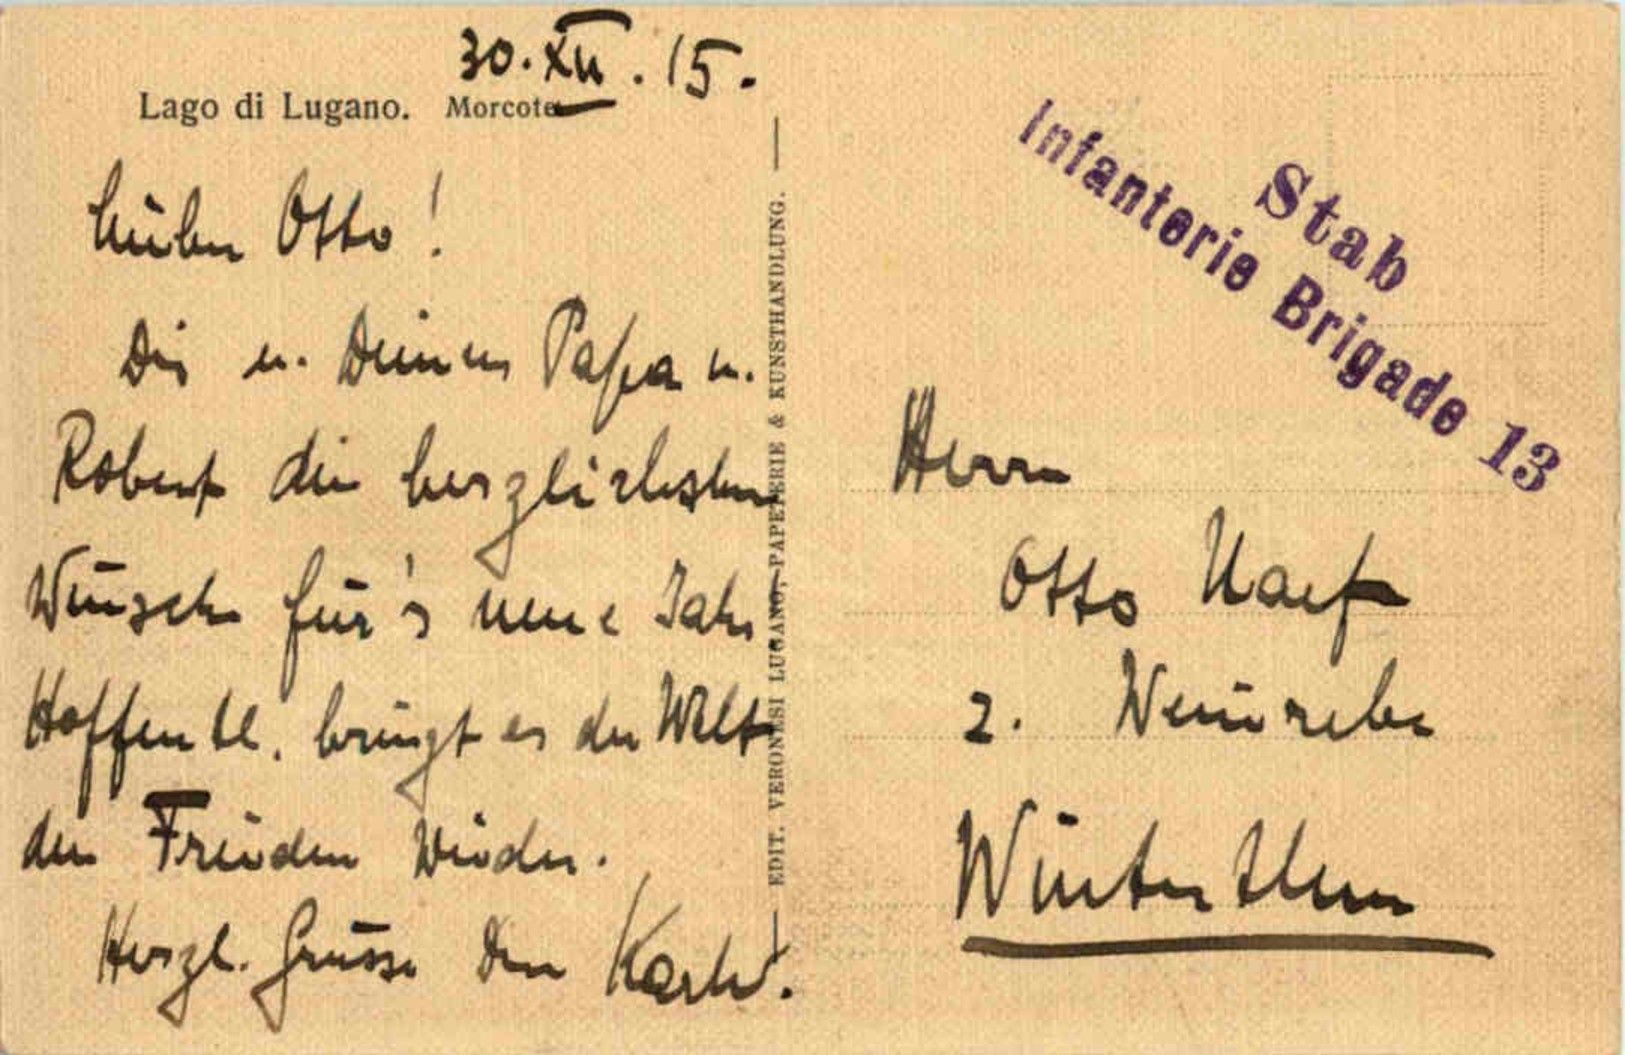 30. XII. 15.
Lago di Lugano. Morcote
Lieber Otto!
Dir u. Deinem Papa u.
Robert die herzlichsten
Wünsche für's neue Jahr
Hoffentl. bringt es der Welt
den Frieden wieder.
Herzl. Grüsse Dein
EDIT. VERONESI LUGANO, PAPETERIE & KUNSTHANDLUNG.
Stab
Infanterie Brigade 13
Herrn
Otto Naef
z. Weinrebe
Winterthur